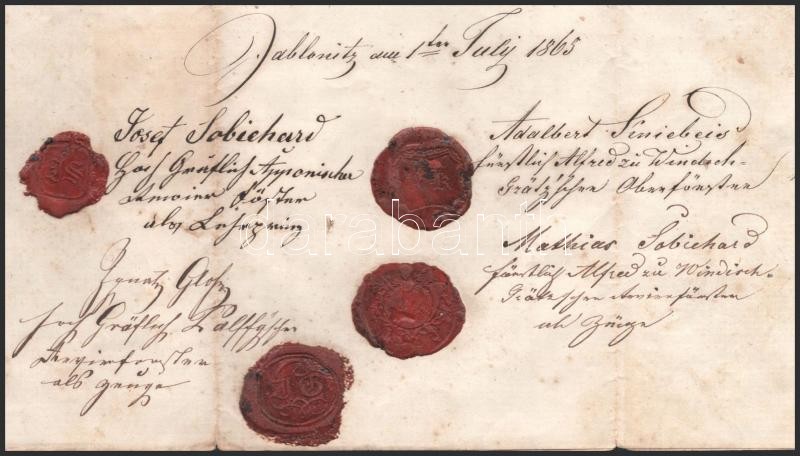 Jablonitz am 1ten July 1865
Josef Sobichard
Hoch Gräflich Apponischer
Revier Föster
als Lehrprinz
Adalbert Siniebeis
fürstlich Alfred zu Windisch-
Grätz'scher Oberförster
Mathias Sobichard
fürstlich Alfred zu Windisch-
Grätzscher Revierförster
als Zeuge
Ignatz
hoch Gräflich Palffyscher
Revierforster
als zeuge
darabanth